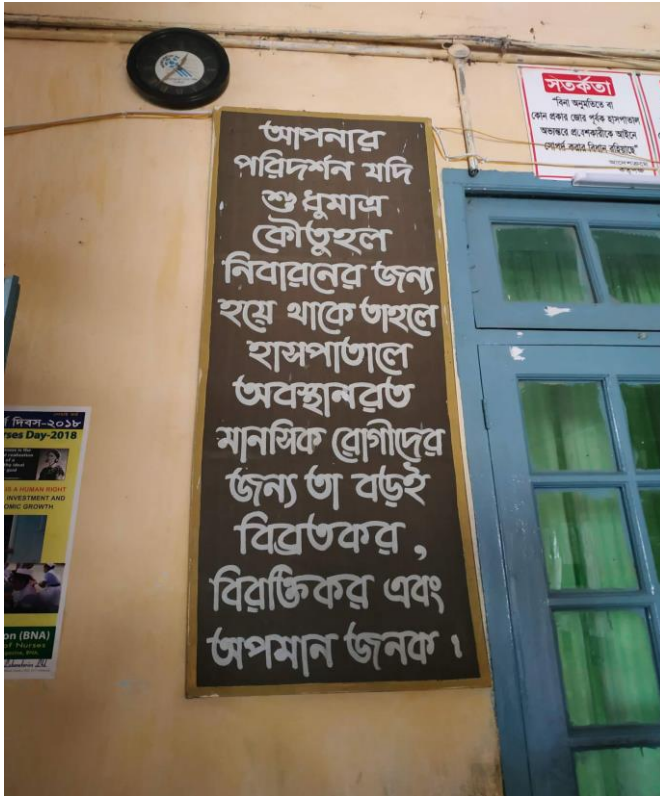 আপনার
পরিদর্শন যদি
শুধুমাত্র
কৌতুহল
নিবারনের জন্য
হয়ে থাকে তাহলে
হাসপাতালে
অবস্থানরত
মানসিক রোগীদের
জন্য তা বড়ই
বিব্রতকর ,
বিরক্তিকর এবং
অপমান জনক ।
সতর্কতা
"বিনা অনুমতিতে বা
কোন প্রকার জোর পূর্বক হাসপাতাল
অভ্যন্তরে প্রবেশকারীকে আইনে
সোপর্দ করার বিধান রহিয়াছে"
আদেশক্রমে
দিবস-২০১৮
rses Day-2018
IS A HUMAN RIGHT
INVESTMENT AND
OMIC GROWTH
on (BNA)
of Nurses